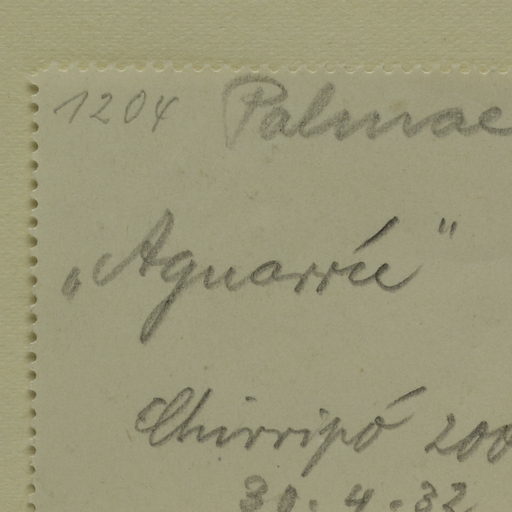 1204 Palmae
„Aguarríc"
Chirripó 200
30.4.32